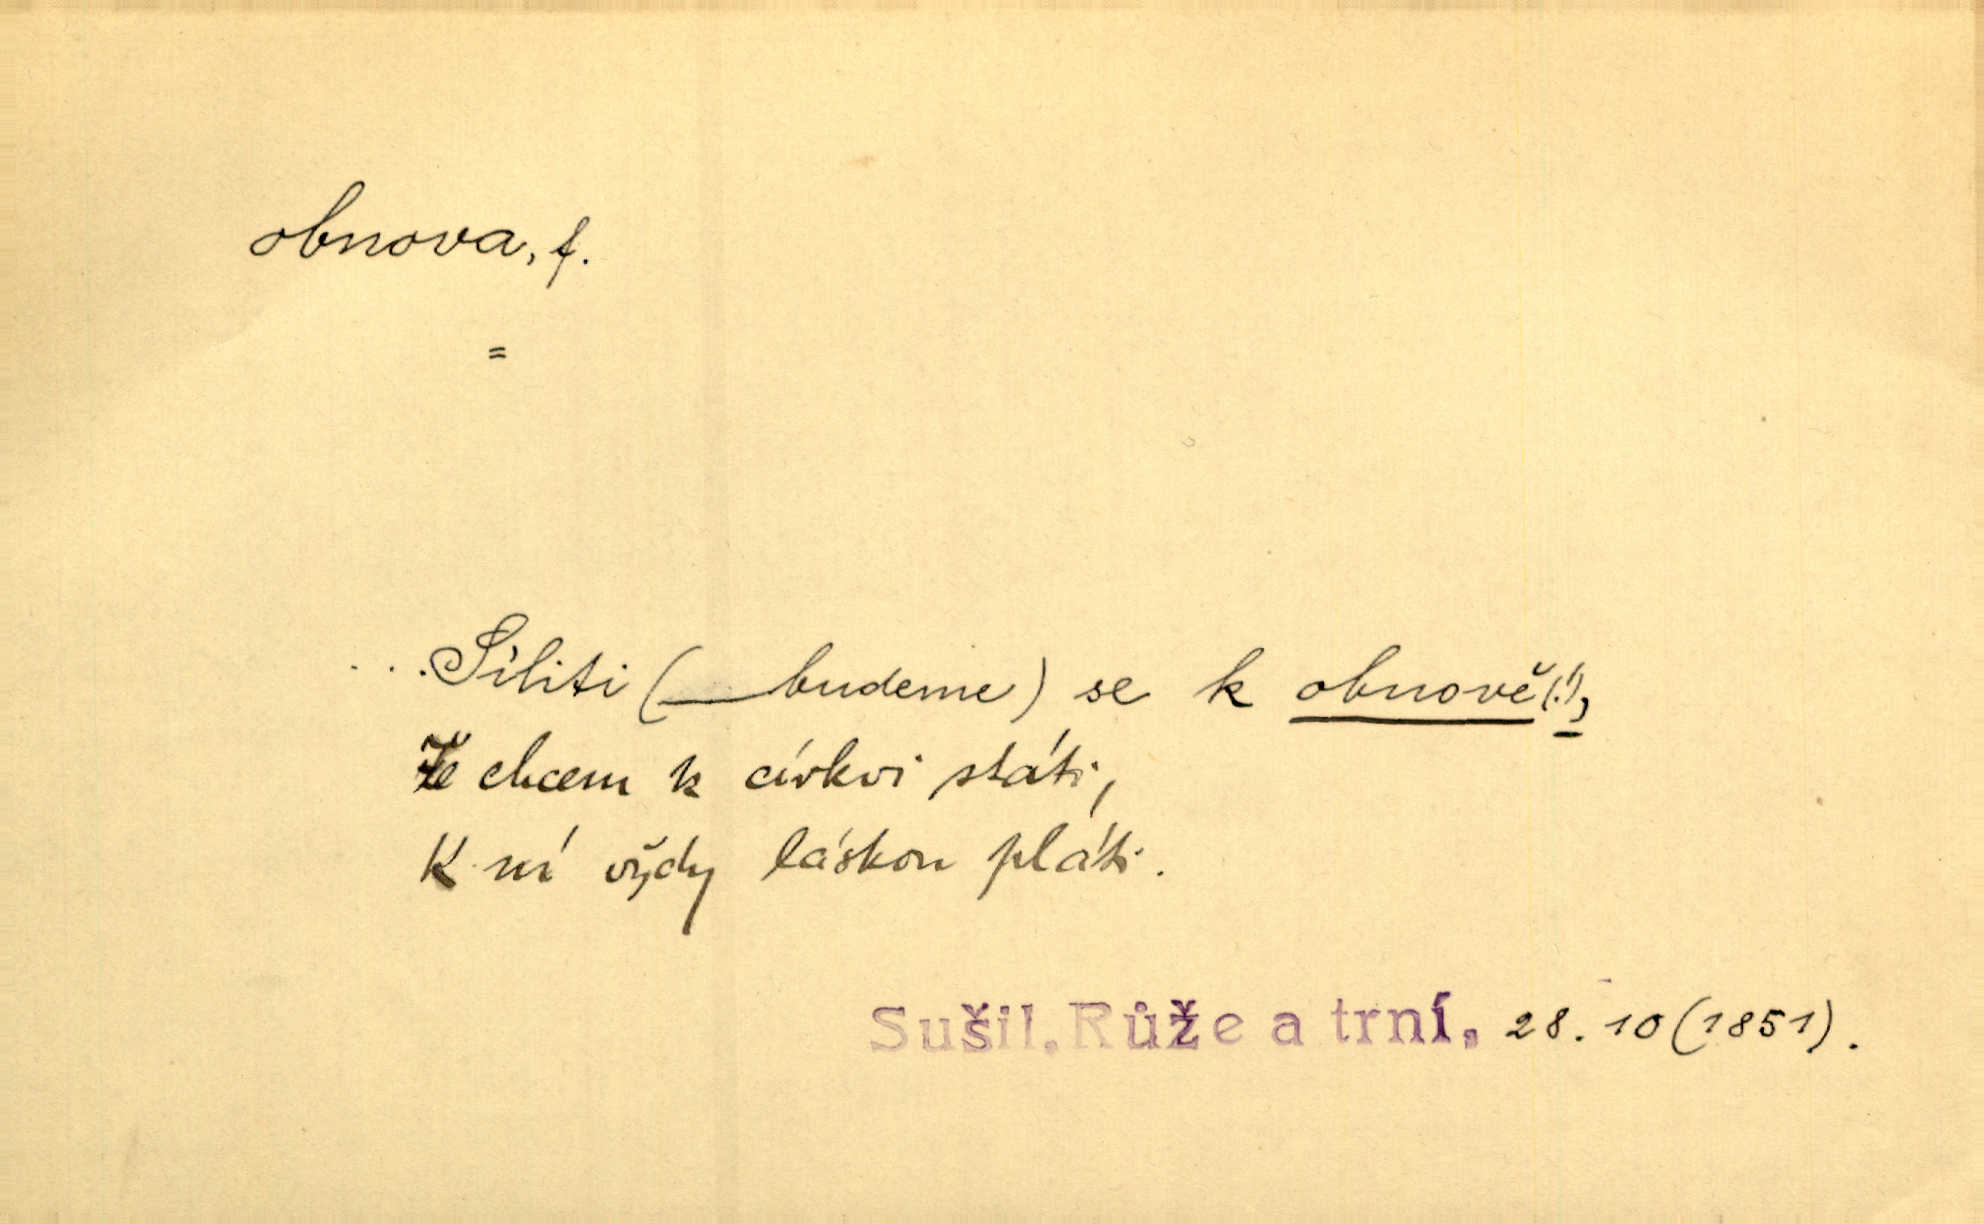 obnova, f.
=
. . . Síliti (— budeme) se k obnově(!),
Že chcem k církvi státi,
K ní vždy láskou pláti.
Sušil. Růže a trní, 28. 10 (1851).